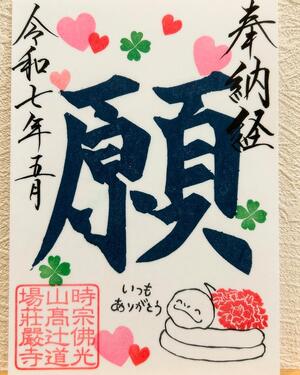 奉納経
願
令和七年五月
いつも
ありがとう
時宗佛光
山高辻道
場荘厳寺